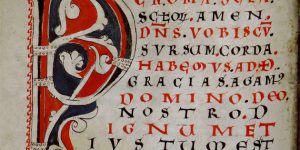 SCŁOꝜ. AMEN.
DÑS VOBISCŨ
SVRSVM CORDA
HABEMVS AD D̄
GRACIAS AGAM⁹
DOMINO. DEO
NOSTRO. D
IGNUM ET
IVSTUM EST